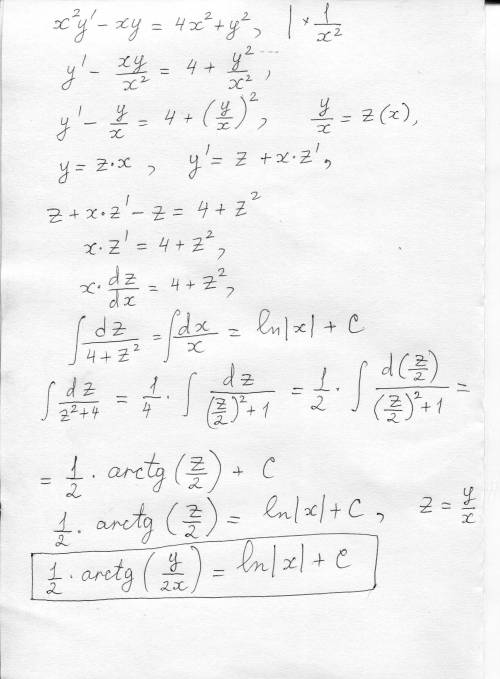 x²y' - xy = 4x² + y², | × 1/x²
y' - xy/x² = 4 + y²/x²,
y' - y/x = 4 + (y/x)², y/x = z(x),
y = z·x, y' = z + x·z',
z + x·z' - z = 4 + z²
x·z' = 4 + z²,
x·dz/dx = 4 + z²,
∫ dz/(4 + z²) = ∫ dx/x = ln|x| + C
∫ dz/(z² + 4) = 1/4 · ∫ dz/((z/2)² + 1) = 1/2 · ∫ d(z/2)/((z/2)² + 1) =
= 1/2 · arctg(z/2) + C
1/2 · arctg(z/2) = ln|x| + C, z = y/x
1/2 · arctg(y/2x) = ln|x| + C